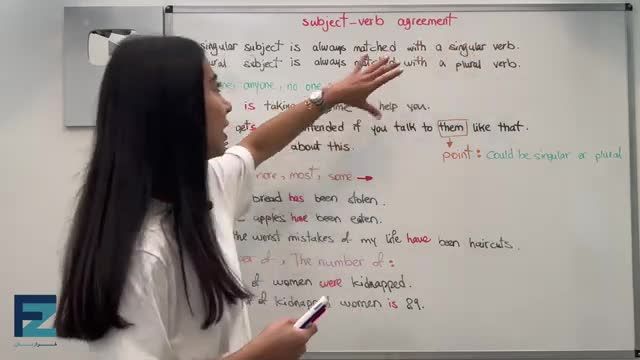 subject-verb agreement
singular subject is always matched with a singular verb.
subject is always matched with a plural verb.
anyone, no one
is taking help you.
gets if you talk to them like that.
about this.
point: Could be singular or plural
more, most, some →
bread has been stolen.
apples have been eaten.
the worst mistakes of my life have been haircuts.
of, The number of:
of women were kidnapped.
of kidnapped women is 89.
FZ